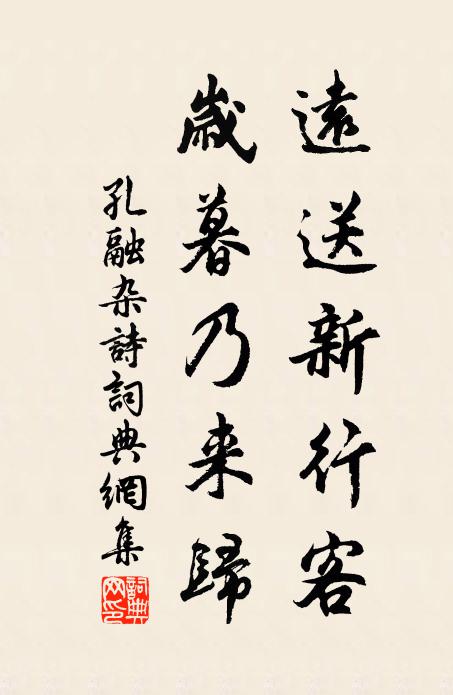 遠送新行客
歲暮乃来歸
孔融杂詩詞典網集
詞典网印